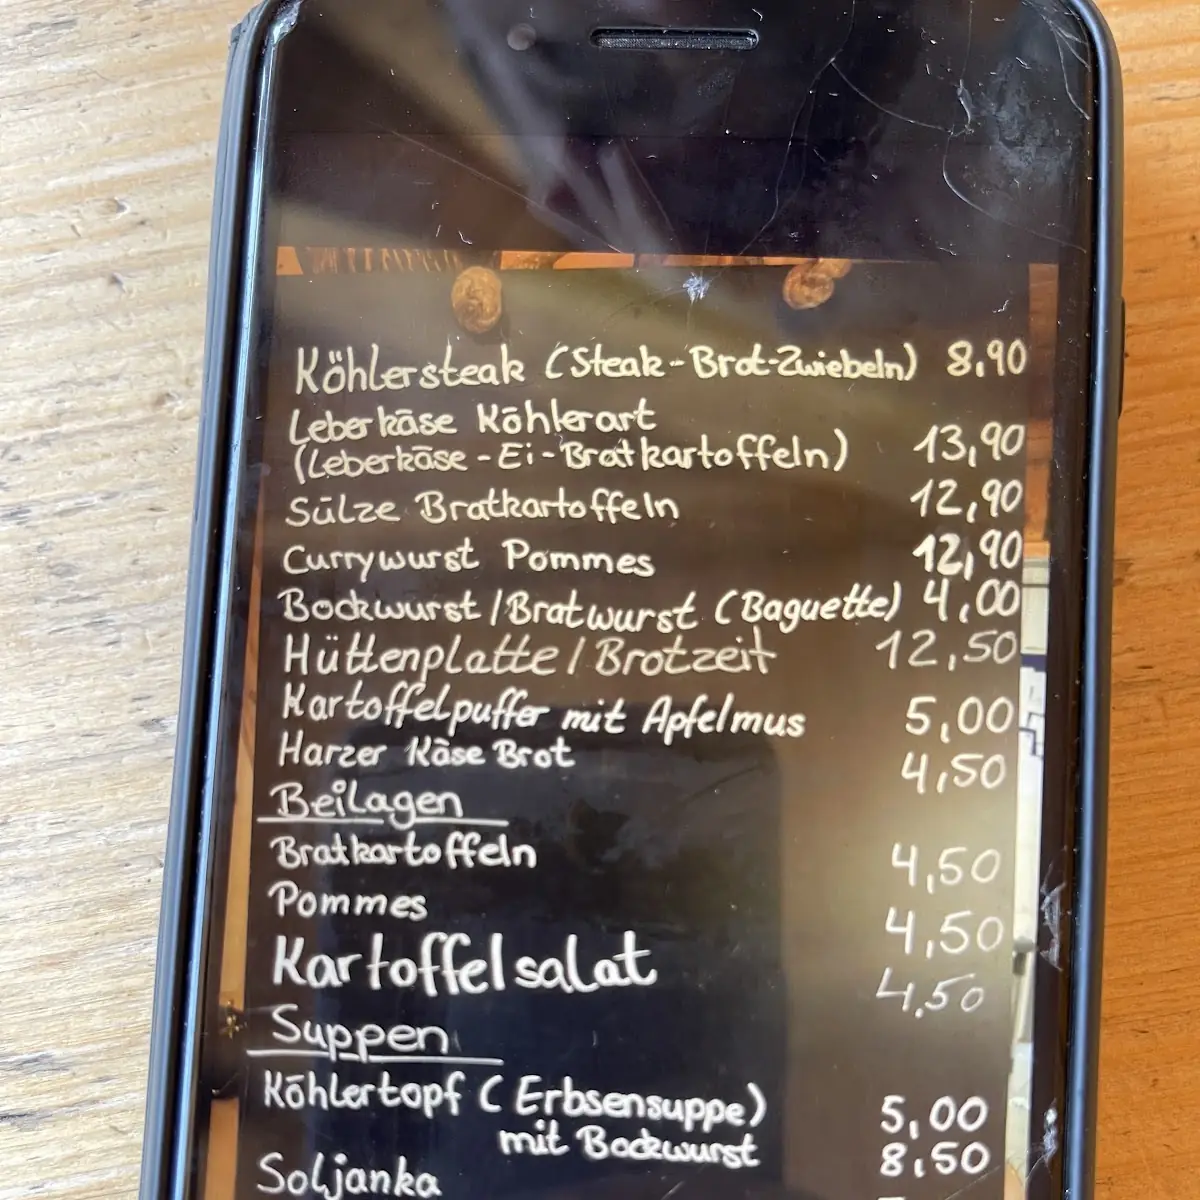 Köhlersteak (Steak-Brot-Zwiebeln) 8,90
Leberkäse Köhlerart
(Leberkäse-Ei-Bratkartoffeln) 13,90
Sülze Bratkartoffeln 12,90
Currywurst Pommes 12,90
Bockwurst/Bratwurst (Baguette) 4,00
Hüttenplatte/Brotzeit 12,50
Kartoffelpuffer mit Apfelmus 5,00
Harzer Käse Brot 4,50
Beilagen
Bratkartoffeln 4,50
Pommes 4,50
Kartoffelsalat 4,50
Suppen
Köhlertopf (Erbsensuppe) 5,00
mit Bockwurst 8,50
Soljanka